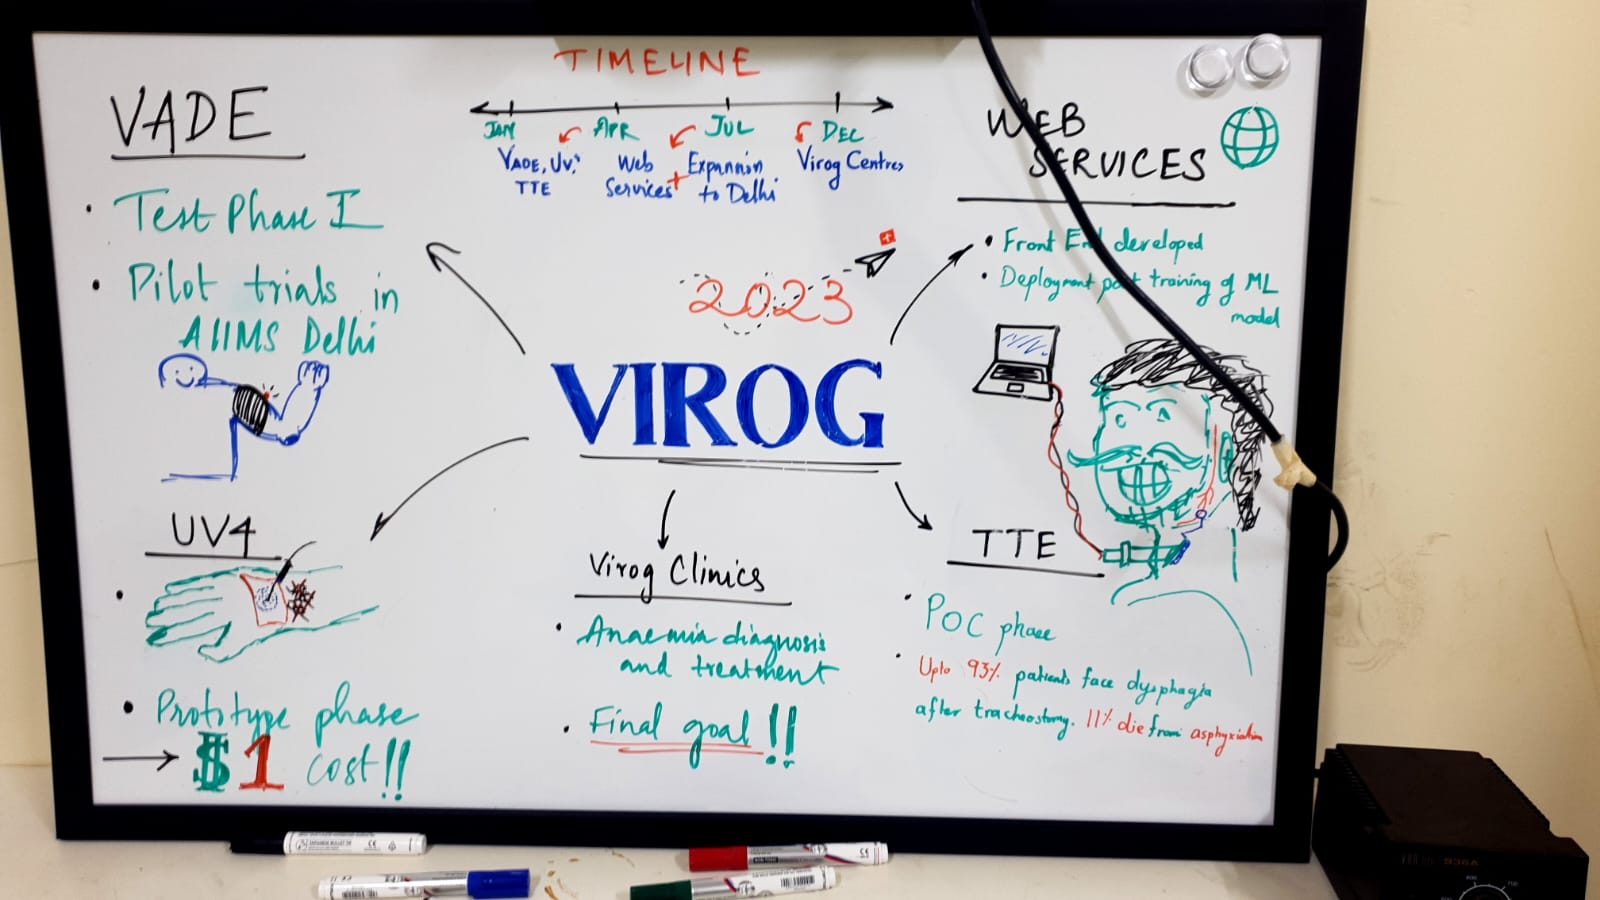 TIMELINE
JAN APR JUL DEC
VADE, UV,
TTE
Web
Services
+
Expansion
to Delhi
Virog Centres
VADE
• Test Phase I
• Pilot trials in
AIIMS Delhi
WEB
SERVICES
• Front End developed
• Deployment post training of ML
model
2023
VIROG
UV4
• Prototype phase
$1 cost!!
Virog Clinics
• Anaemia diagnosis
and treatment
• Final goal!!
TTE
• POC phase
• Upto 93% patients face dysphagia
after tracheostomy. 11% die from asphyxiation
936A